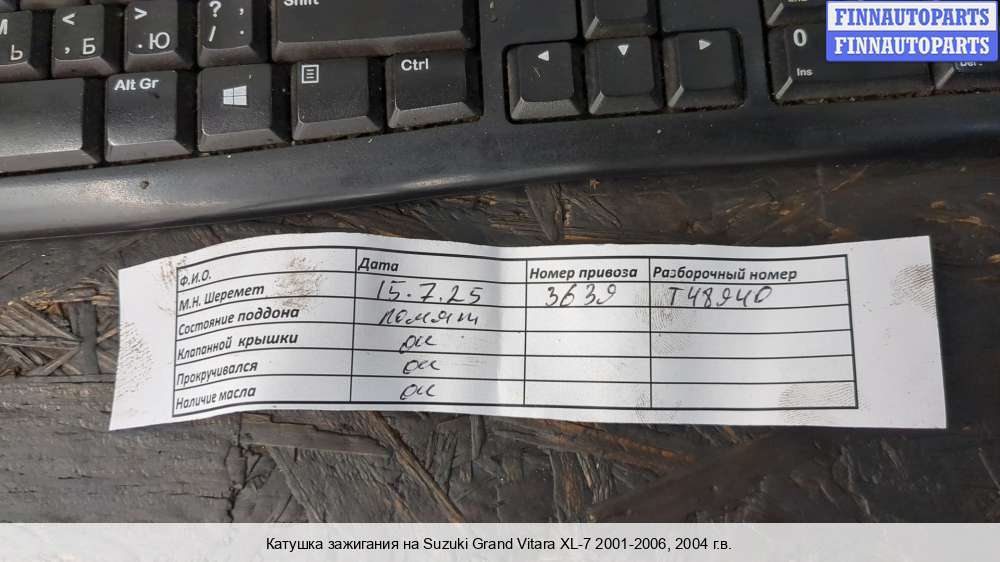 Shift
FINNAUTOPARTS
FINNAUTOPARTS
Ь
< , Б
> . Ю
? / .
Alt Gr
Ctrl
0
Ins
Del
Ф.И.О. Дата Номер привоза Разборочный номер
М.Н. Шеремет 15.7.25 3639 Т48940
Состояние поддона помят
Клапанной крышки ок
Прокручивался ок
Наличие масла ок
Катушка зажигания на Suzuki Grand Vitara XL-7 2001-2006, 2004 г.в.